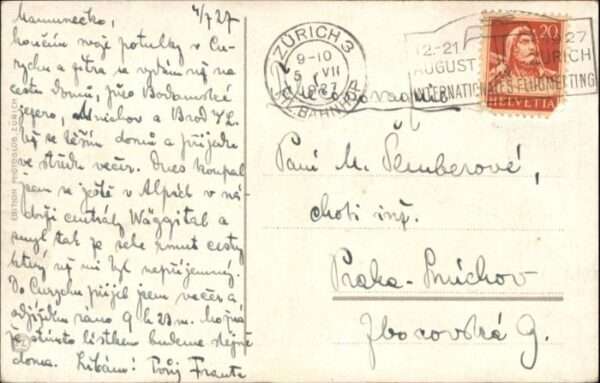 4/7 27
Mamunečko,
končím svoje potulky v Cu-
rychu a zítra se vydám už na
cestu domů, přes Bodamské
jezero, Mnichov a Brod n/L.
Už se těším domů a přijedu
ve středu večer. Dnes koupal
jsem se ještě v Alpách v ná-
drži centrály Wäggital a
smyl tak se sebe smut cesty
který už mi byl nepříjemný.
Do Curychu přijel jsem večer a
odjíždím ráno 9 h 23 m. Možná
že s tímto lístkem budeme stejně
doma. Líbám! Tvůj Franta
EDITION PHOTOGLOB, ZÜRICH
ZÜRICH 3
9-10
5. VII
1927
H. BAHNHOF
12-21 27
AUGUST ZÜRICH
INTERNATIONALES FLUGMEETING
20
HELVETIA
Paní M. Šemberové,
choti inž.
Praha-Smíchov
Zborovská 9.